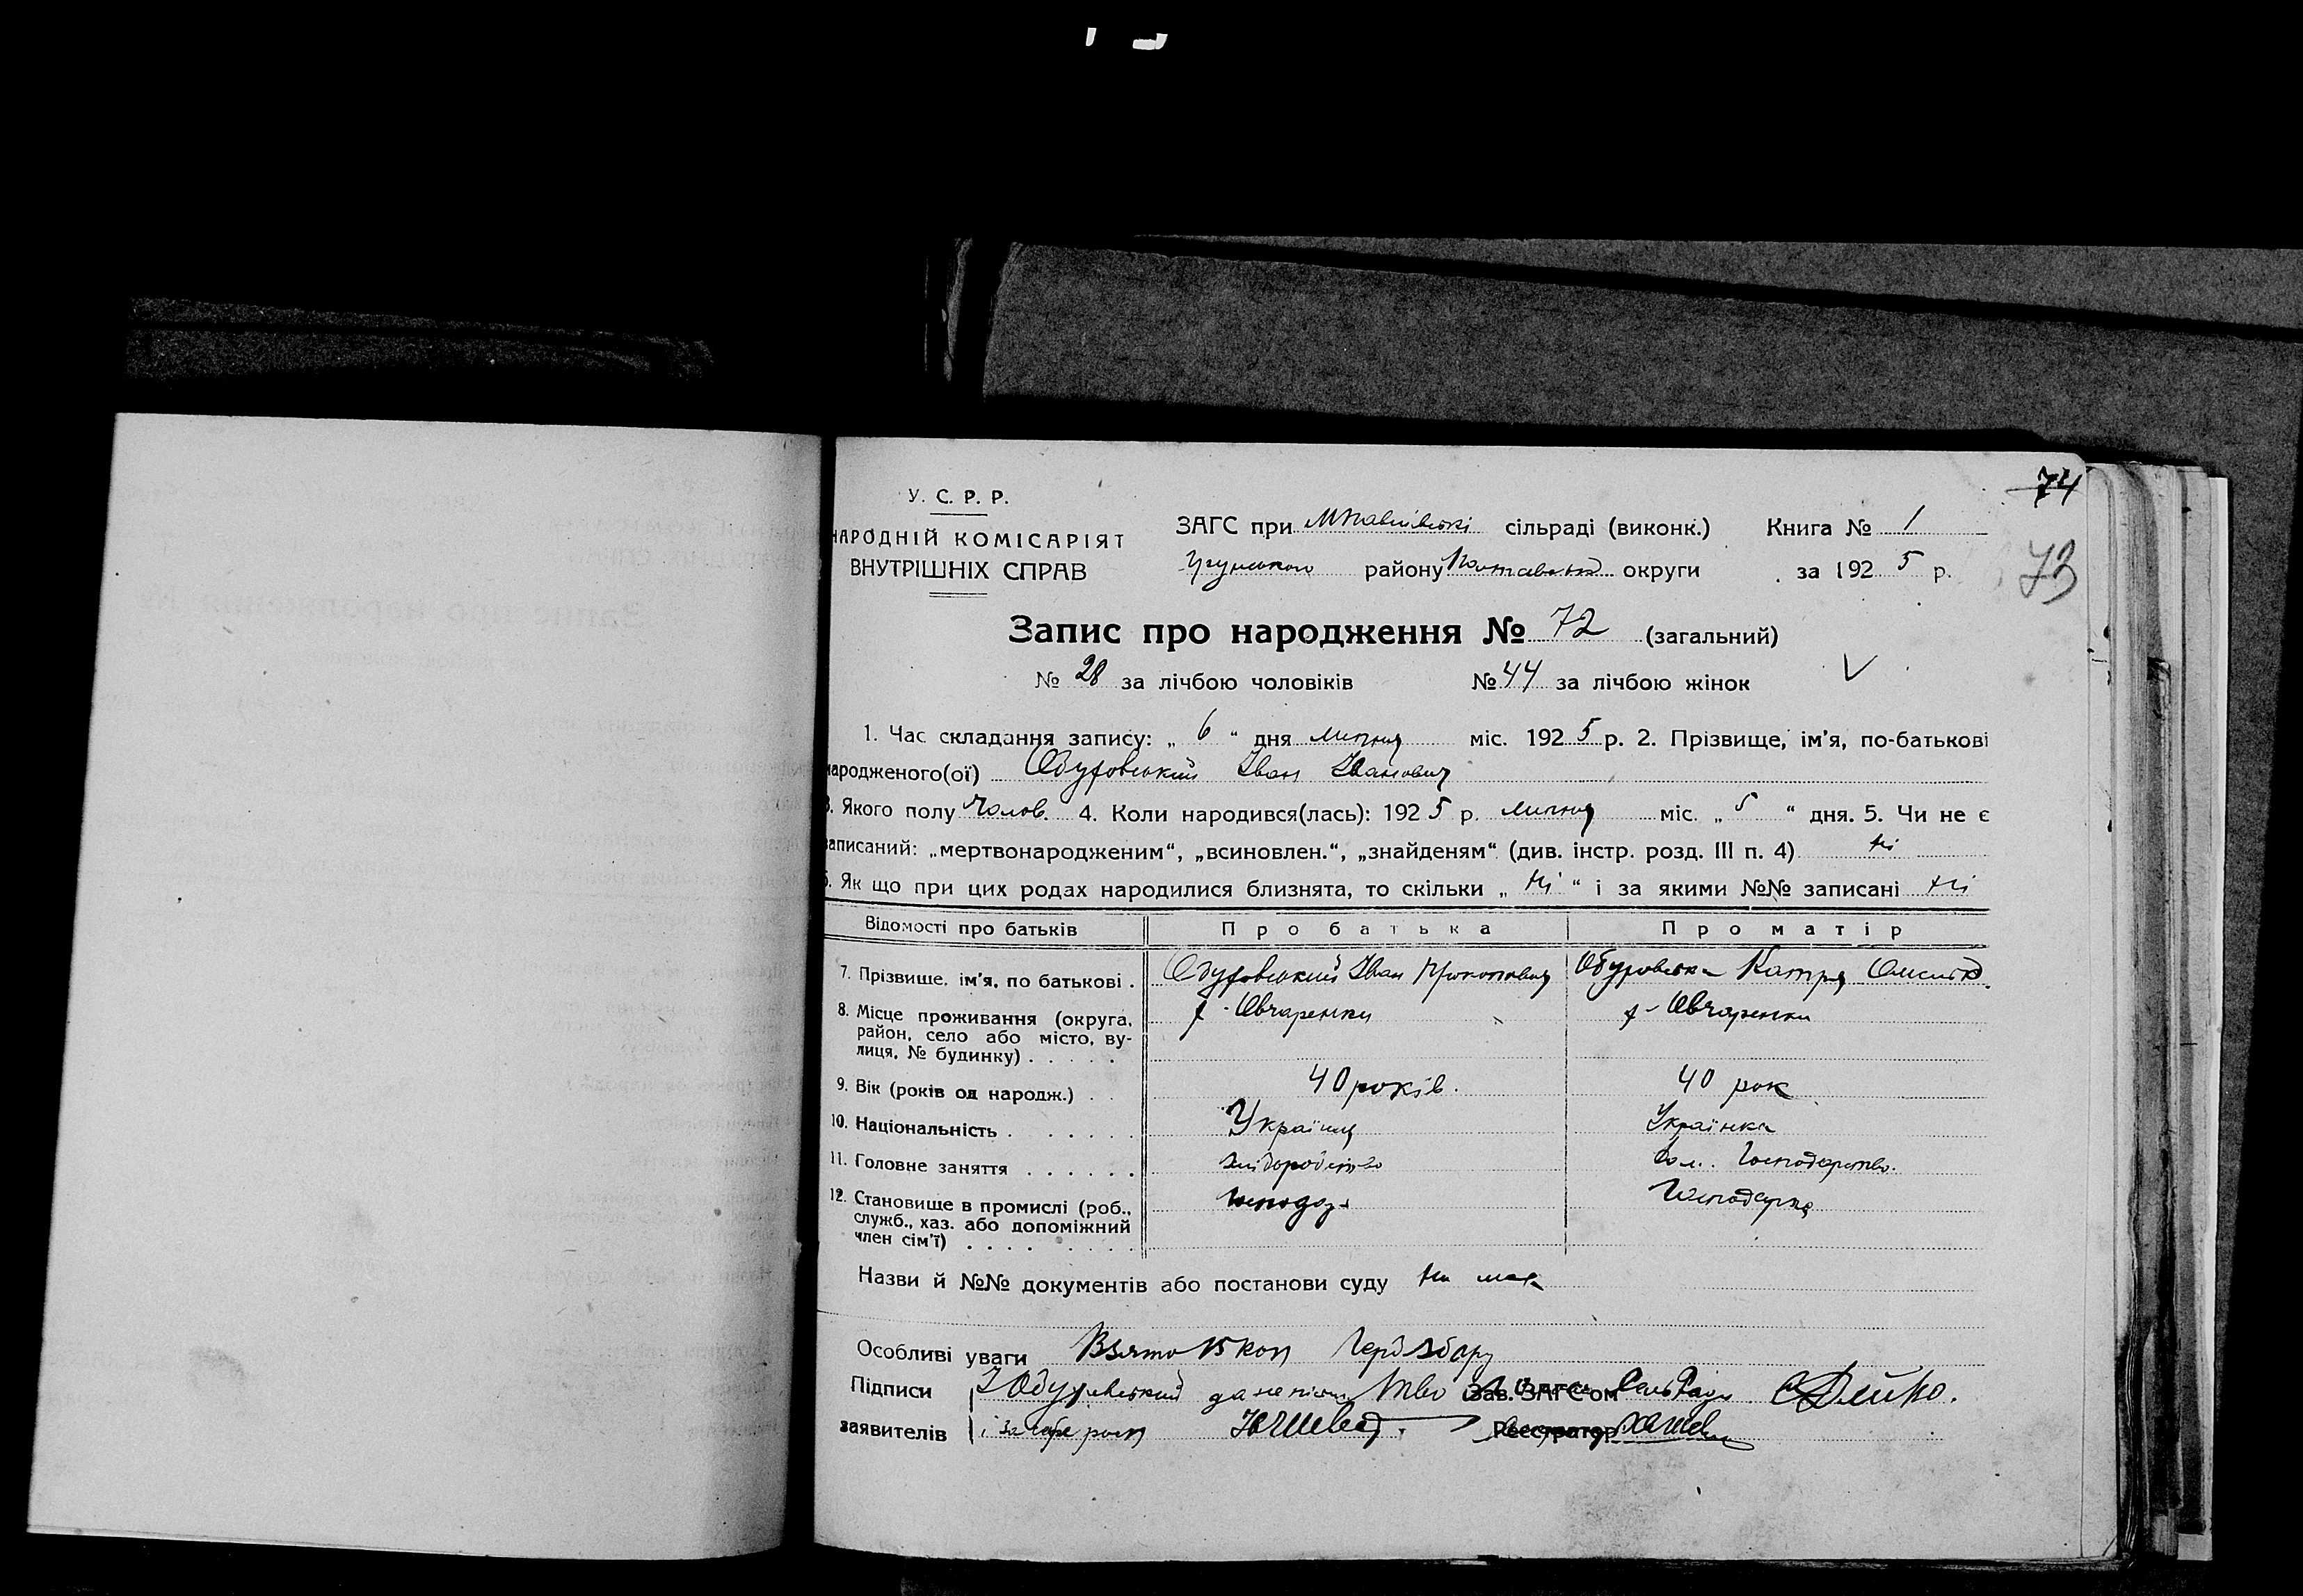 74
73
У. С. Р. Р.
НАРОДНІЙ КОМІСАРІЯТ
ВНУТРІШНІХ СПРАВ
ЗАГС при сільраді (виконк.) Книга № 1
району округи за 1925 р.
Запис про народження № 72 (загальний)
№ 28 за лічбою чоловіків № 44 за лічбою жінок
1. Час складання запису: „ 6 “ дня липня міс. 1925 р. 2. Прізвище, ім’я, по-батькові
народженого(ої) Іван Іванович
3. Якого полу Чолов. 4. Коли народився(лась): 1925 р. липня міс. „ 5 “ дня. 5. Чи не є
записаний: „мертвонародженим“, „всиновлен.“, „знайденям“ (див. інстр. розд. III п. 4) ні
6. Як що при цих родах народилися близнята, то скільки „ ні “ і за якими №№ записані ні
Відомості про батьків Про батька Про матір
7. Прізвище, ім’я, по батькові . Іван Прокопович Катря
8. Місце проживання (округа, х. Овчаренки х. Овчаренки
район, село або місто, ву-
лиця, № будинку) . . . . .
9. Вік (років од народж.) . . 40 років. 40 рок
10. Національність . . . . . . . Українец Українка
11. Головне заняття . . . . . . хліборобство Господарство.
12. Становище в промислі (роб., господар Господарка
служб., хаз. або допоміжний
член сім’ї) . . . . . . . .
Назви й №№ документів або постанови суду
Особливі уваги Взято 15 коп Герб збору
Підписи Зав. ЗАГС’ом
заявителів Реєстратор